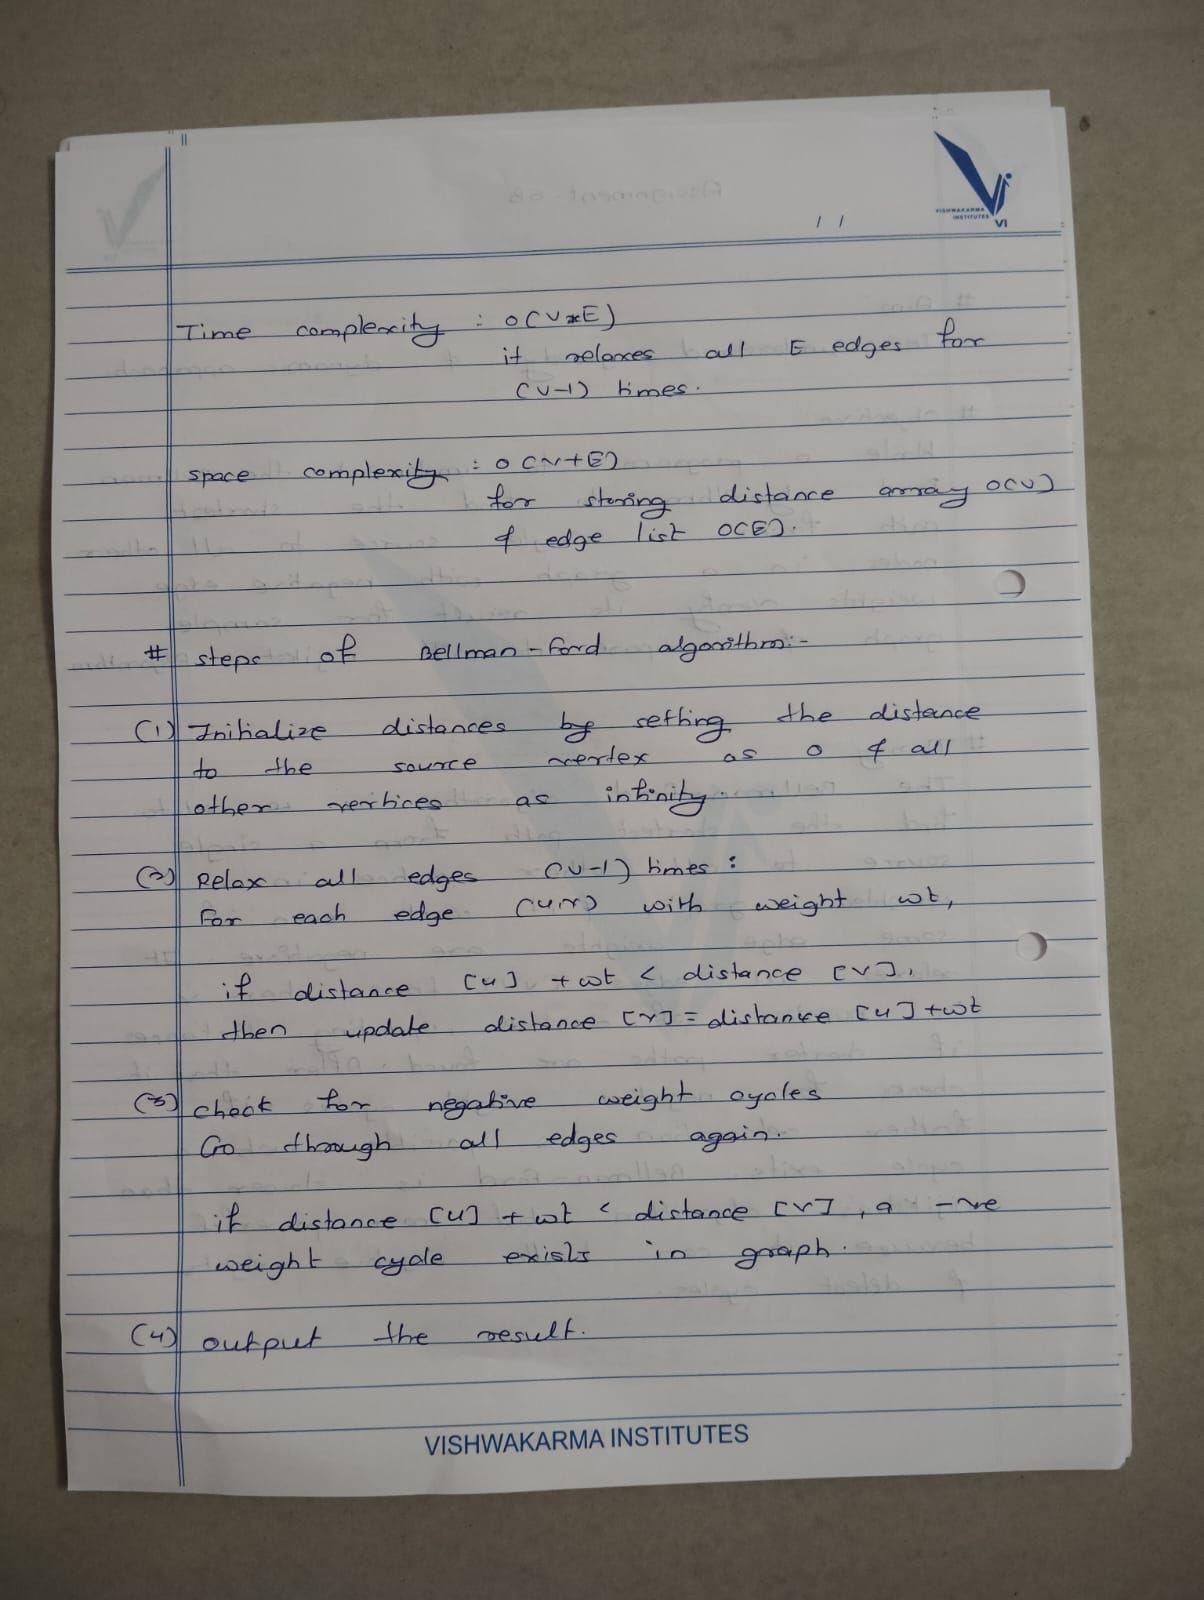 VISHWAKARMA
INSTITUTES
VI
/ /
Time complexity : O(V*E)
it relaxes all E edges for
(V-1) times.
space complexity : O(V+E)
for storing distance array O(V)
& edge list O(E).
# steps of Bellman-Ford algorithm:-
(1) Initialize distances by setting the distance
to the source vertex as 0 & all
other vertices as infinity.
(2) Relax all edges (V-1) times :
For each edge (u,v) with weight wt,
if distance [u] + wt < distance [v],
then update distance [v] = distance [u] + wt
(3) check for negative weight cycles
Go through all edges again.
if distance [u] + wt < distance [v], a -ve
weight cycle exists in graph.
(4) output the result.
VISHWAKARMA INSTITUTES